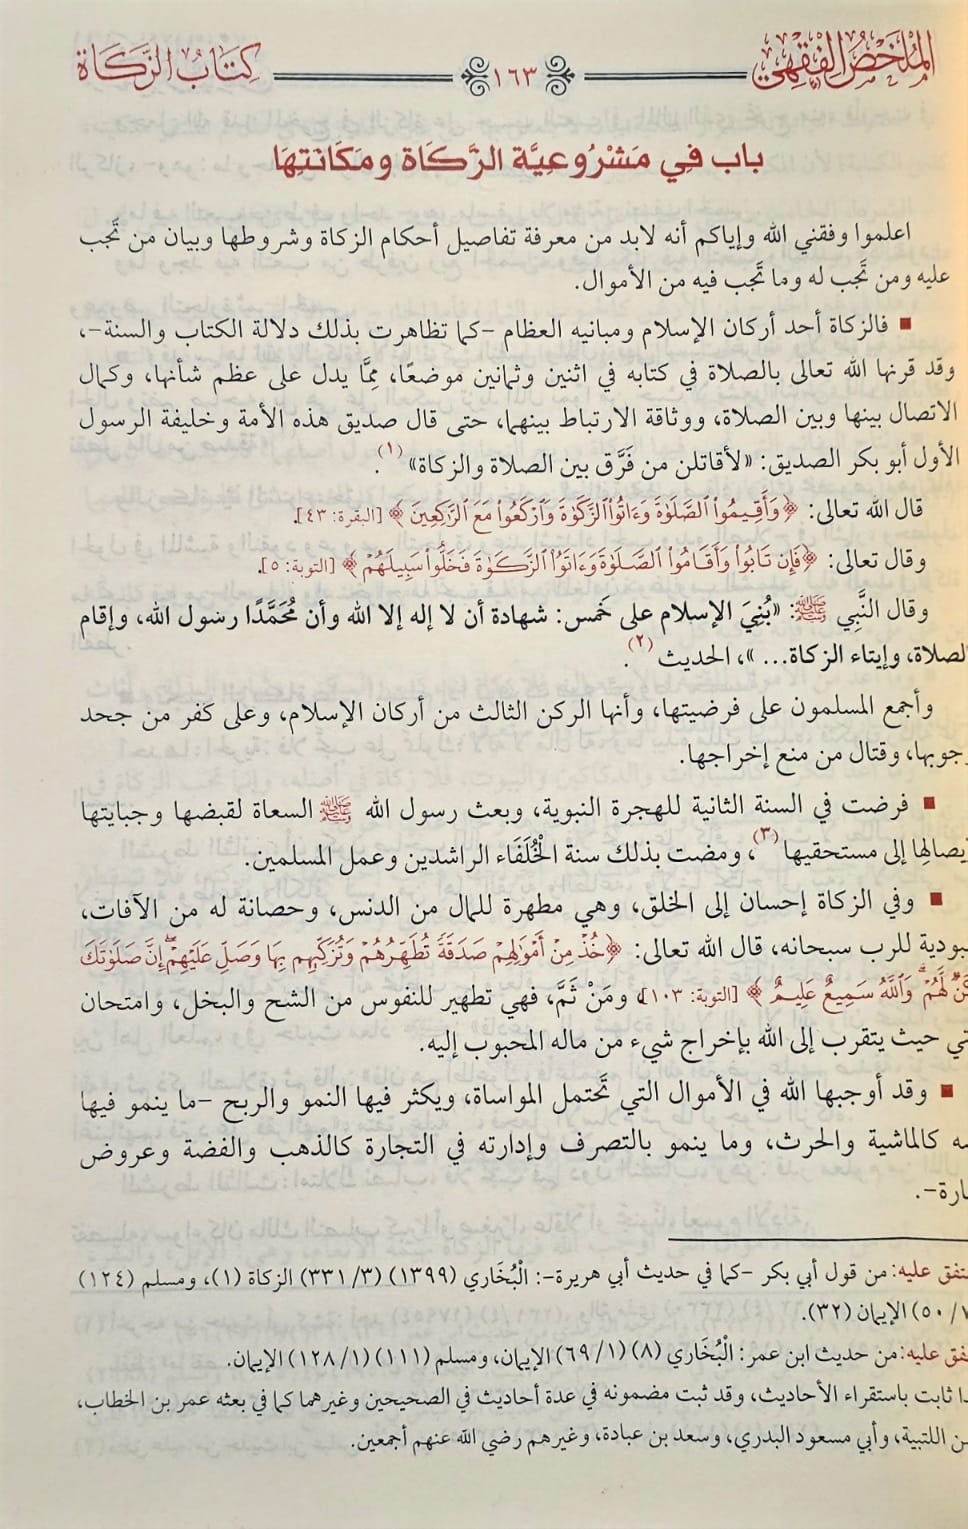 الملخص الفقهي ١٦٣ كتاب الزكاة
باب في مَشْرُوعِيَّة الزَّكَاة ومَكَانَتِهَا
اعلموا وفقني الله وإياكم أنه لابد من معرفة تفاصيل أحكام الزكاة وشروطها وبيان من تَجب
عليه ومن تَجب له وما تَجب فيه من الأموال.
■ فالزكاة أحد أركان الإسلام ومبانيه العظام -كما تظاهرت بذلك دلالة الكتاب والسنة-،
وقد قرنها الله تعالى بالصلاة في كتابه في اثنين وثمانين موضعًا، مِمَّا يدل على عظم شأنها، وكمال
الاتصال بينها وبين الصلاة، ووثاقة الارتباط بينهما، حتى قال صديق هذه الأمة وخليفة الرسول
الأول أبو بكر الصديق: «لأقاتلن من فَرَّق بين الصلاة والزكاة» (١).
قال الله تعالى: ﴿وَأَقِيمُوا۟ ٱلصَّلَوٰةَ وَءَاتُوا۟ ٱلزَّكَوٰةَ وَٱرْكَعُوا۟ مَعَ ٱلرَّٰكِعِينَ﴾ [البقرة: ٤٣].
وقال تعالى: ﴿فَإِن تَابُوا۟ وَأَقَامُوا۟ ٱلصَّلَوٰةَ وَءَاتَوُا۟ ٱلزَّكَوٰةَ فَخَلُّوا۟ سَبِيلَهُمْ﴾ [التوبة: ٥].
وقال النَّبِي ﷺ: «بُنِيَ الإسلام على خَمس: شهادة أن لا إله إلا الله وأن مُحَمَّدًا رسول الله، وإقام
لصلاة، وإيتاء الزكاة... »، الحديث (٢).
وأجمع المسلمون على فرضيتها، وأنها الركن الثالث من أركان الإسلام، وعلى كفر من جحد
جوبها، وقتال من منع إخراجها.
■ فرضت في السنة الثانية للهجرة النبوية، وبعث رسول الله ﷺ السعاة لقبضها وجبايتها
يصالِها إلى مستحقيها (٣)، ومضت بذلك سنة الْخُلَفَاء الراشدين وعمل المسلمين.
■ وفي الزكاة إحسان إلى الخلق، وهي مطهرة للمال من الدنس، وحصانة له من الآفات،
بودية للرب سبحانه، قال الله تعالى: ﴿خُذْ مِنْ أَمْوَٰلِهِمْ صَدَقَةً تُطَهِّرُهُمْ وَتُزَكِّيهِم بِهَا وَصَلِّ عَلَيْهِمْ ۖ إِنَّ صَلَوٰتَكَ
كَنٌ لَّهُمْ ۗ وَٱللَّهُ سَمِيعٌ عَلِيمٌ﴾ [التوبة: ١٠٣]، ومَنْ ثَمَّ، فهي تطهير للنفوس من الشح والبخل، وامتحان
ني حيث يتقرب إلى الله بإخراج شيء من ماله المحبوب إليه.
■ وقد أوجبها الله في الأموال التي تَحتمل المواساة، ويكثر فيها النمو والربح -ما ينمو فيها
سه كالماشية والحرث، وما ينمو بالتصرف وإدارته في التجارة كالذهب والفضة وعروض
ارة-.
تفق عليه: من قول أبي بكر -كما في حديث أبي هريرة-: الْبُخَاري (١٣٩٩) (٣٣١/٣) الزكاة (١)، ومسلم (١٢٤)
٥٠) الإيمان (٣٢).
فق عليه: من حديث ابن عمر: الْبُخَاري (٨) (٦٩/١) الإيمان، ومسلم (١١١) (١٢٨/١) الإيمان.
ا ثابت باستقراء الأحاديث، وقد ثبت مضمونه في عدة أحاديث في الصحيحين وغيرهما كما في بعثه عمر بن الخطاب،
ن اللتبية، وأبي مسعود البدري، وسعد بن عبادة، وغيرهم رضي الله عنهم أجمعين.